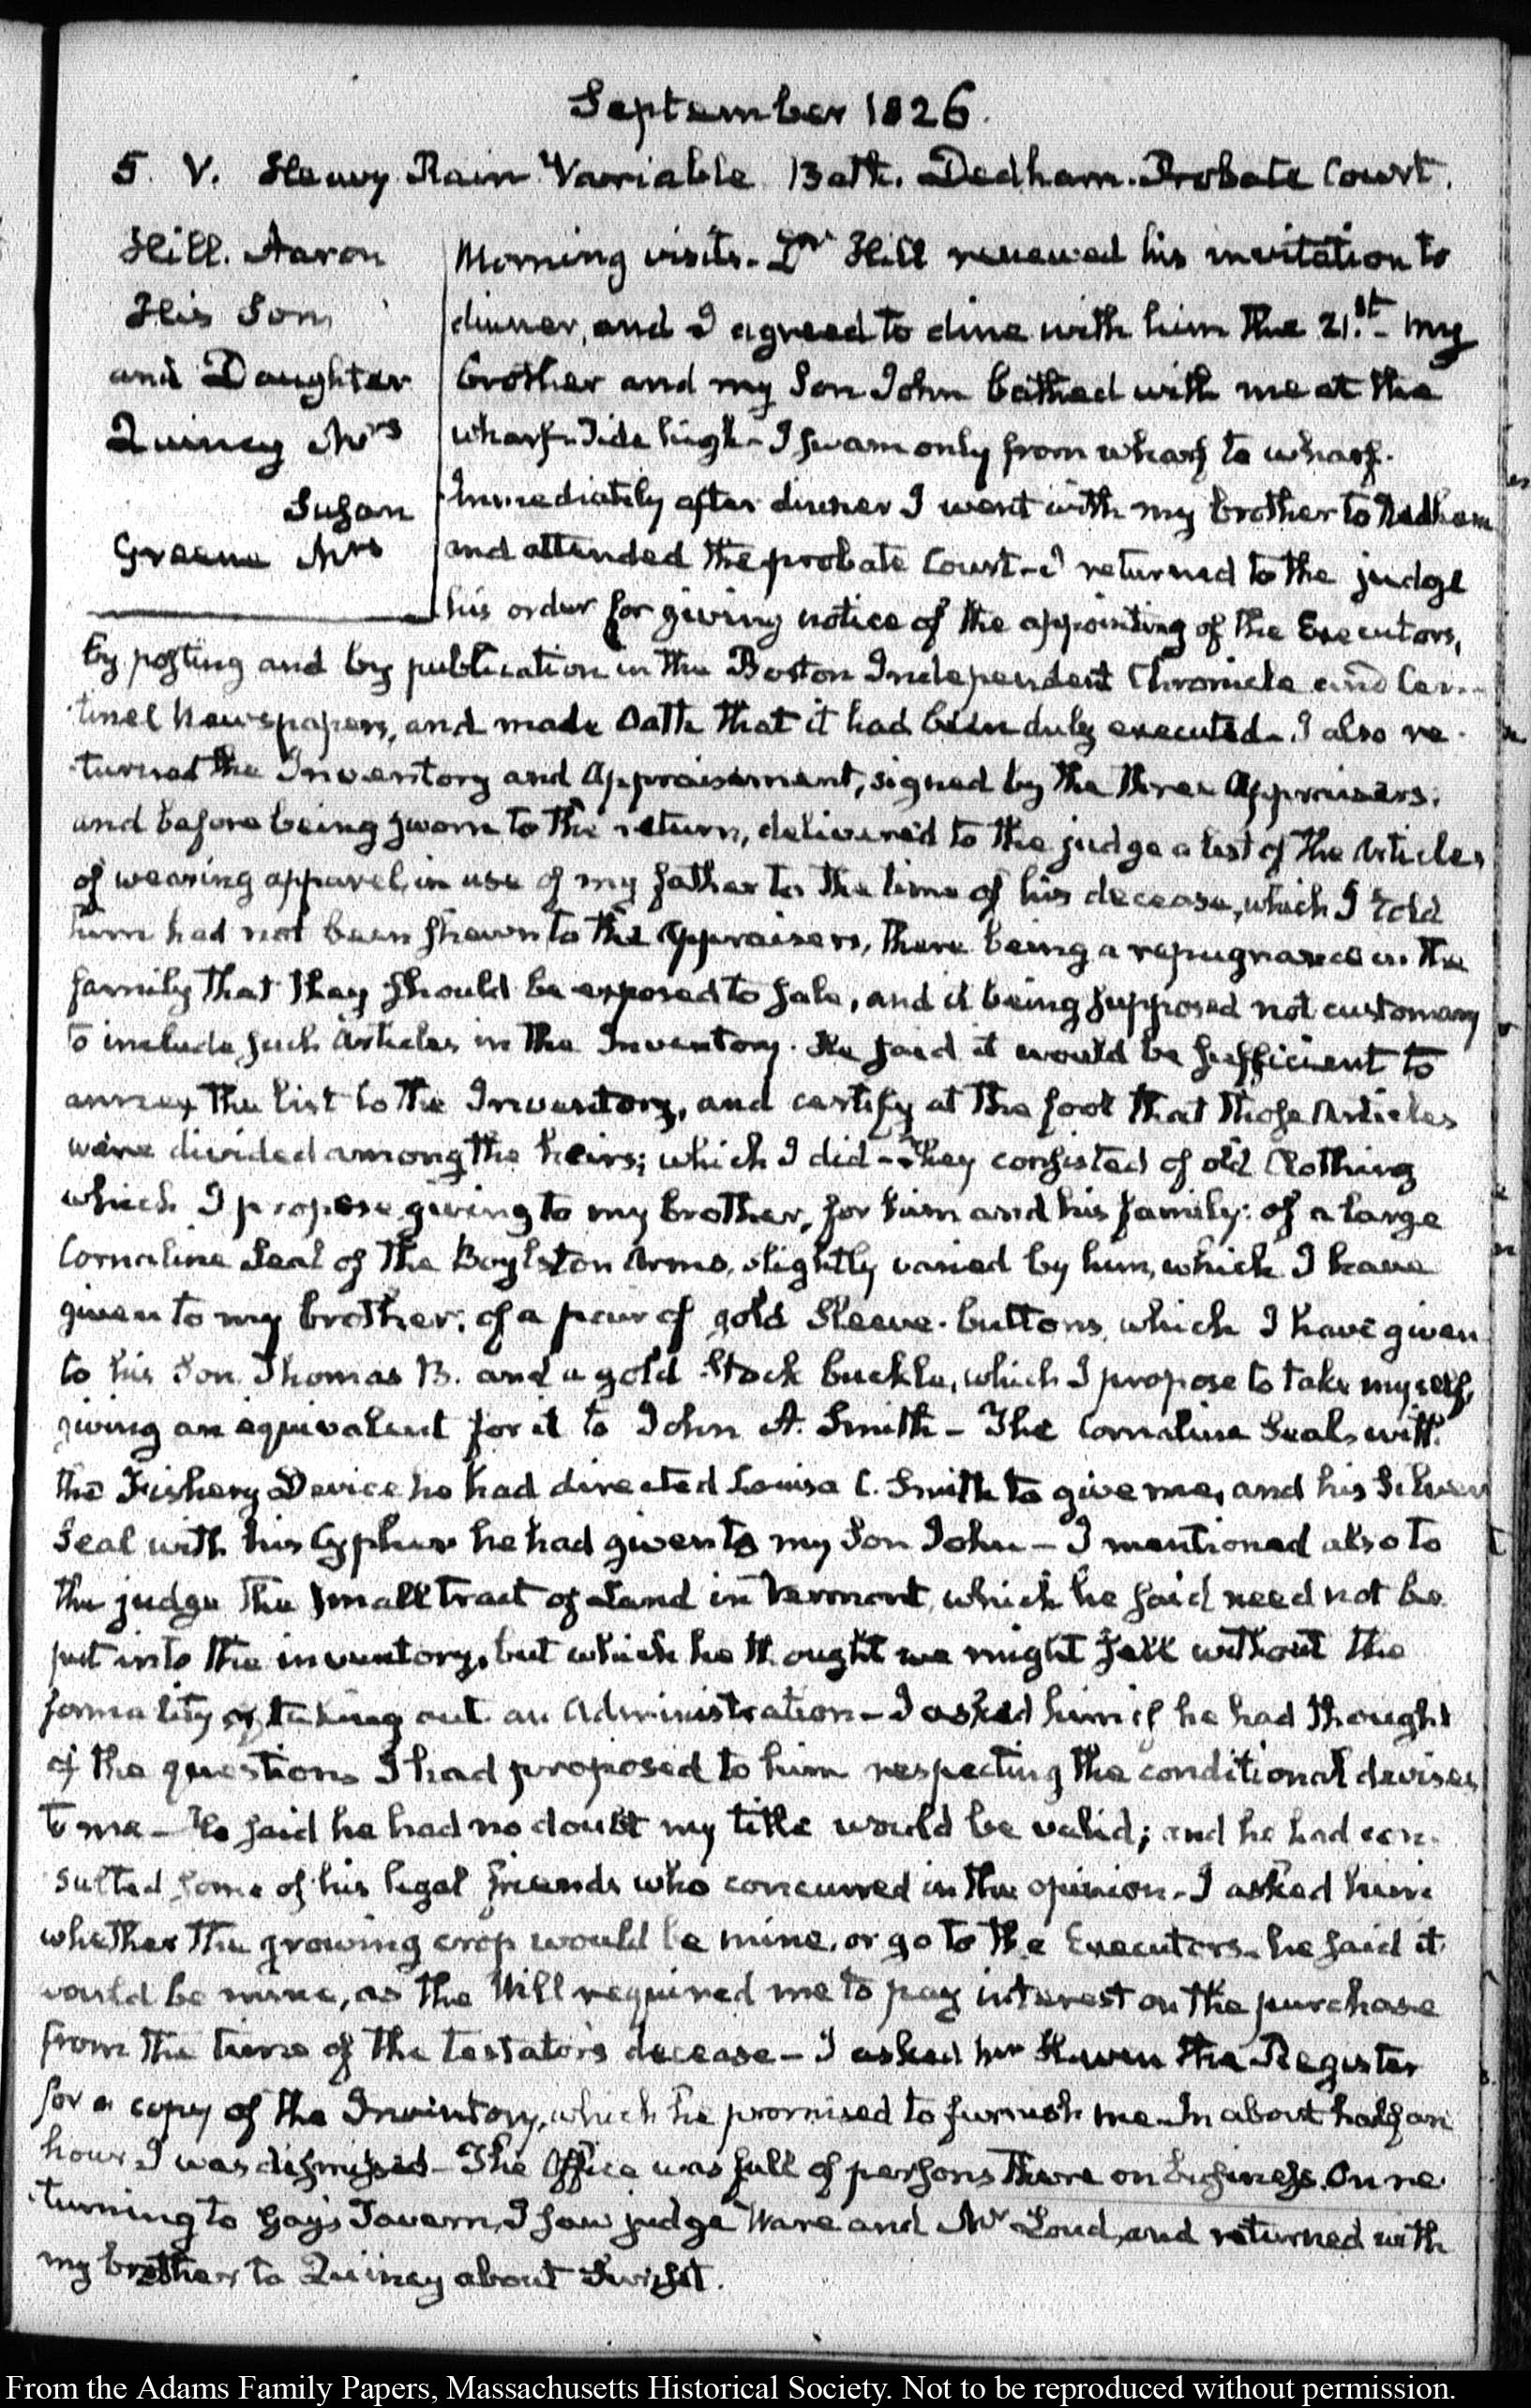 September 1826.
5. V. Heavy Rain Variable. Bath. Dedham. Probate Court.
Hill. Aaron
His Son
and Daughter
Quincy Mrs
Susan
Greene Mrs
Morning visits. Dr Hill renewed his invitation to
dinner, and I agreed to dine with him the 21.st - My
brother and my Son John bathed with me at the
wharf. Tide high - I swam only from wharf to wharf.
Immediately after dinner I went with my brother to Dedham
and attended the probate Court - I returned to the judge
his order for giving notice of the appointing of the Executors,
by posting and by publication in the Boston Independent Chronicle and Cen-
tinel Newspapers, and made Oath that it had been duly executed - I also re-
turned the Inventory and Appraisement, signed by the three Appraisers;
and before being sworn to the return, delivered to the judge a list of the Articles
of wearing apparel, in use of my father to the time of his decease, which I told
him had not been shewn to the Appraisers, there being a repugnance in the
family that they should be exposed to sale, and it being supposed not customary
to include such Articles in the Inventory. He said it would be sufficient to
annex the list to the Inventory, and certify at the foot that those Articles
were divided among the heirs; which I did - They consisted of old Clothing
which I propose giving to my brother, for him and his family: of a large
Cornaline Seal of the Boylston Arms, slightly varied by him, which I have
given to my brother; of a pair of gold Sleeve-buttons, which I have given
to his Son Thomas B. and a gold Stock buckle, which I propose to take myself,
giving an equivalent for it to John A. Smith - The Cornaline Seal, with
the Fishery Device he had directed Louisa C. Smith to give me, and his Silver
Seal with his Cypher he had given to my Son John - I mentioned also to
the judge the small tract of Land in Vermont, which he said need not be
put into the inventory, but which he thought we might sell without the
formality of taking out an Administration - I asked him if he had thought
of the questions I had proposed to him respecting the conditional devises
to me - He said he had no doubt my title would be valid; and he had con-
sulted some of his legal friends who concurred in the opinion - I asked him
whether the growing crop would be mine, or go to the Executors - he said it
would be mine, as the Will required me to pay interest on the purchase
from the time of the testator's decease - I asked Mr Haven the Register
for a copy of the Inventory, which he promised to furnish me - In about half an
hour I was dismissed - The Office was full of persons there on business. On re-
turning to Gay's Tavern, I saw judge Ware and Mr Loud, and returned with
my brother to Quincy about Twilight.
From the Adams Family Papers, Massachusetts Historical Society. Not to be reproduced without permission.